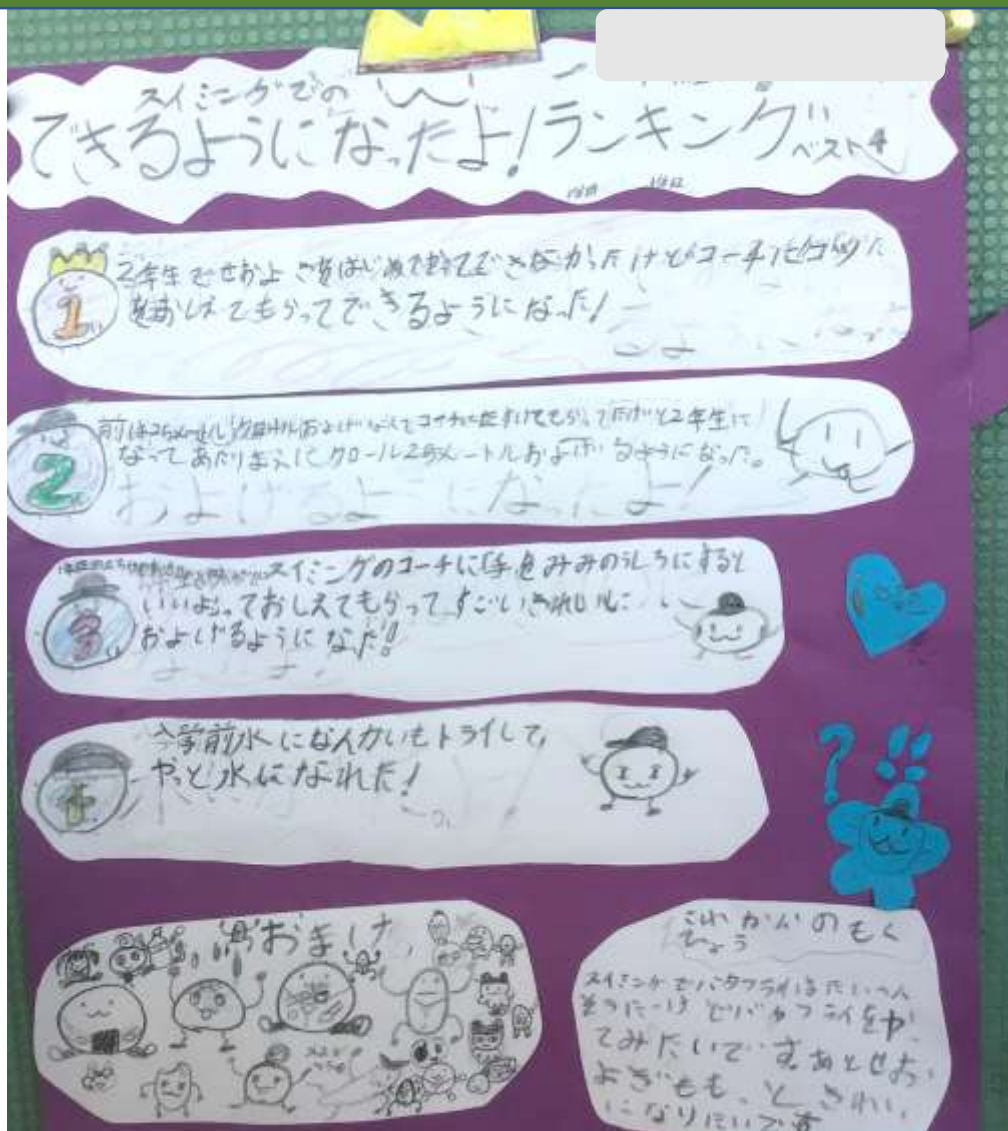 スイミングでの
できるようになったよ!ランキング ベスト4
1
2年生でせおよぎをはじめてできなかったけどコーチにコツ
をおしえてもらってできるようになった!
2
前は25メートルクロールおよげなくてコーチにたすけてもらってたけど2年生に
なってあたりまえにクロール25メートルおよげるようになった。
およげるよ になったよ!
3
スイミングのコーチに「手をみみのうしろにすると
いいよ。っておしえてもらってすごいきれいに
およげるようになった!!
4
入学前水になんかいもトライして、
やっと水になれた!
?!!
おまけ
これからのもく
ひょう
スイミングでバタフライは
けどバタフライをや
てみたいです。あとせお
よぎももっときれい
になりたいです